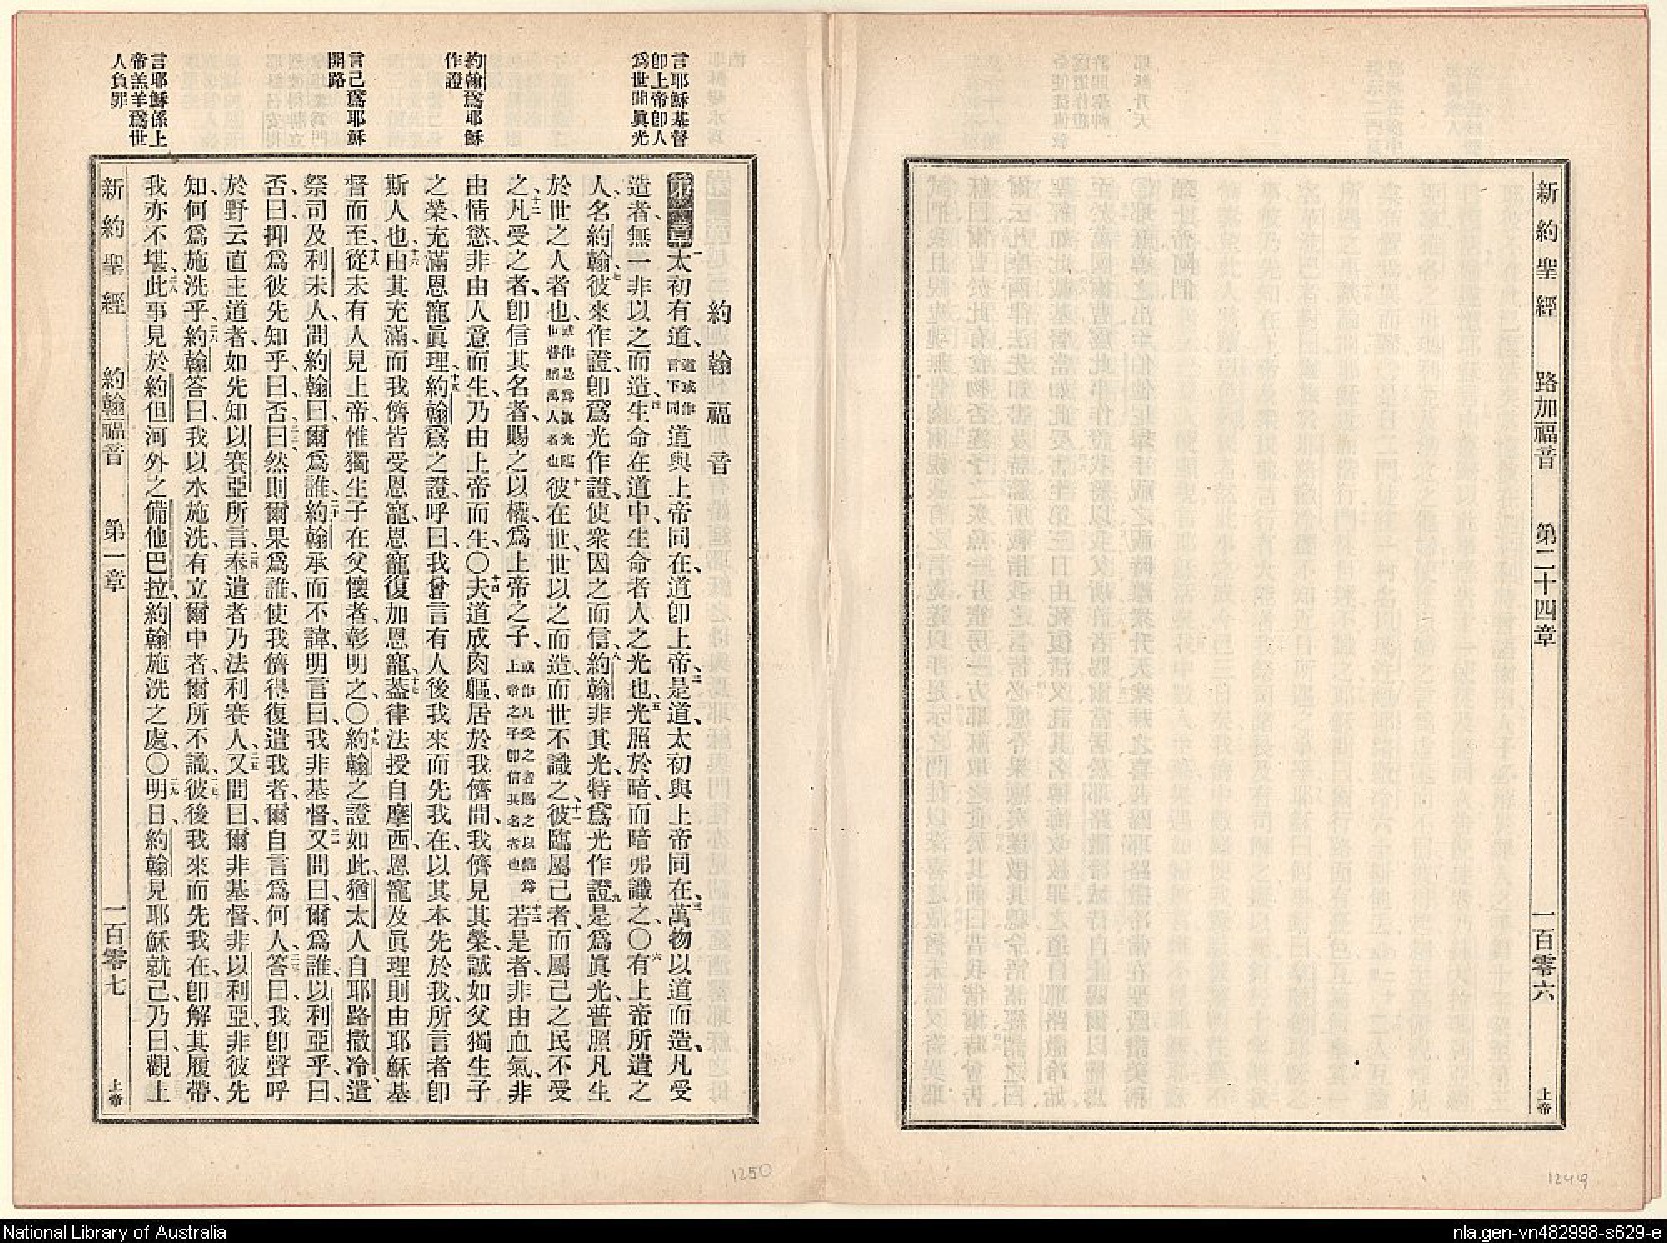 新約聖經 路加福音 第二十四章 一百零六 上帝
1249
言耶穌基督
卽上帝卽人
爲世間眞光
約翰爲耶穌
作證
言己爲耶穌
開路
言耶穌係上
帝羔羊爲世
人負罪
約翰福音
第一章一太初有道、道或作言下同道與上帝同在、道卽上帝、二是道太初與上帝同在、三萬物以道而造、凡受
造者、無一非以之而造、四生命在道中、生命者人之光也、五光照於暗、而暗弗識之、〇六有上帝所遣之
人、名約翰、七彼來作證、卽爲光作證、使衆因之而信、八約翰非其光、特爲光作證、九是爲眞光、普照凡生
於世之人者也、或作是爲眞光臨世普照萬人者也十彼在世、世以之而造、而世不識之、十一彼臨屬己者、而屬己之民不受
之、十二凡受之者、卽信其名者、賜之以權、爲上帝之子、或作凡受之者賜之以權爲上帝之子卽信其名者也十三若是者、非由血氣、非
由情慾、非由人意而生、乃由上帝而生、〇十四夫道成肉軀、居於我儕間、我儕見其榮、誠如父獨生子
之榮、充滿恩寵眞理、十五約翰爲之證、呼曰、我曾言有人後我來、而先我在、以其本先於我、所言者卽
斯人也、十六由其充滿、而我儕皆受恩寵、恩寵復加恩寵、十七蓋律法授自摩西、恩寵及眞理、則由耶穌基
督而至、十八從未有人見上帝、惟獨生子在父懷者、彰明之、〇十九約翰之證如此、猶太人自耶路撒冷、遣
祭司及利未人、問約翰曰、爾爲誰、二十約翰承而不諱、明言曰、我非基督、二一又問曰、爾爲誰、以利亞乎、曰、
否、曰、抑爲彼先知乎、曰、否、二二曰、然則爾果爲誰、使我儕得復遣我者、爾自言爲何人、二三答曰、我卽聲呼
於野云、直主道者、如先知以賽亞所言、二四奉遣者乃法利賽人、二五又問曰、爾非基督、非以利亞、非彼先
知、何爲施洗乎、二六約翰答曰、我以水施洗、有立爾中者、爾所不識、二七彼後我來、而先我在、卽解其履帶、
我亦不堪、二八此事見於約但河外之備他巴拉、約翰施洗之處、〇二九明日、約翰見耶穌就己、乃曰、觀上
新約聖經 約翰福音 第一章 一百零七 上帝
1250
National Library of Australia
nla.gen-vn482998-s629-e